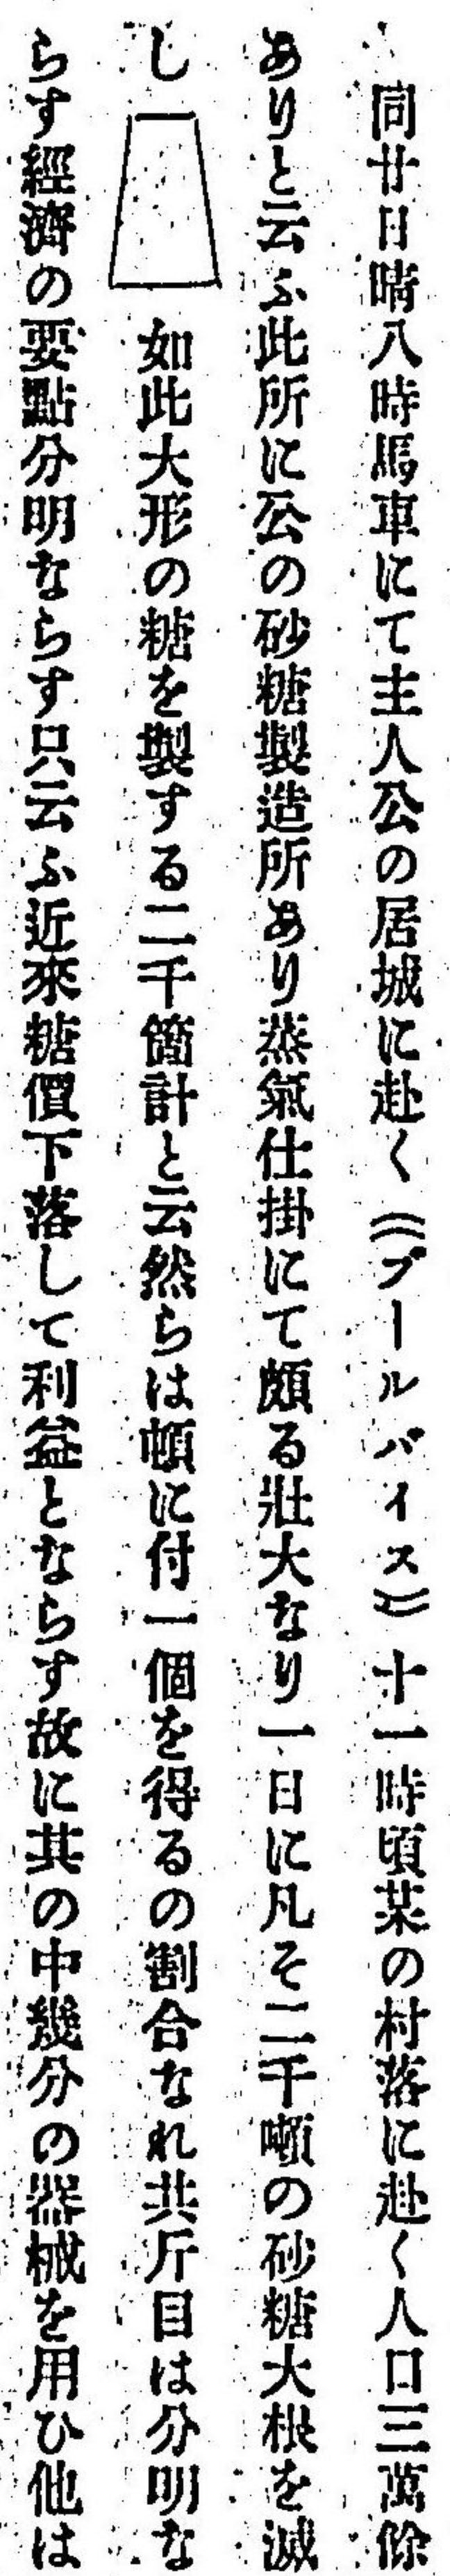 同廿日晴八時馬車にて主人公の居城に赴く（（プールバイス））十一時頃某の村落に赴く人口三萬餘
ありと云ふ此所に公の砂糖製造所あり蒸氣仕掛にて頗る壯大なり一日に凡そ二千噸の砂糖大根を滅
し 如此大形の糖を製する二千箇計と云然らは頓に付一個を得るの割合なれ共斤目は分明な
らす經濟の要點分明ならす只云ふ近來糖價下落して利益とならす故に其の中幾分の器械を用ひ他は